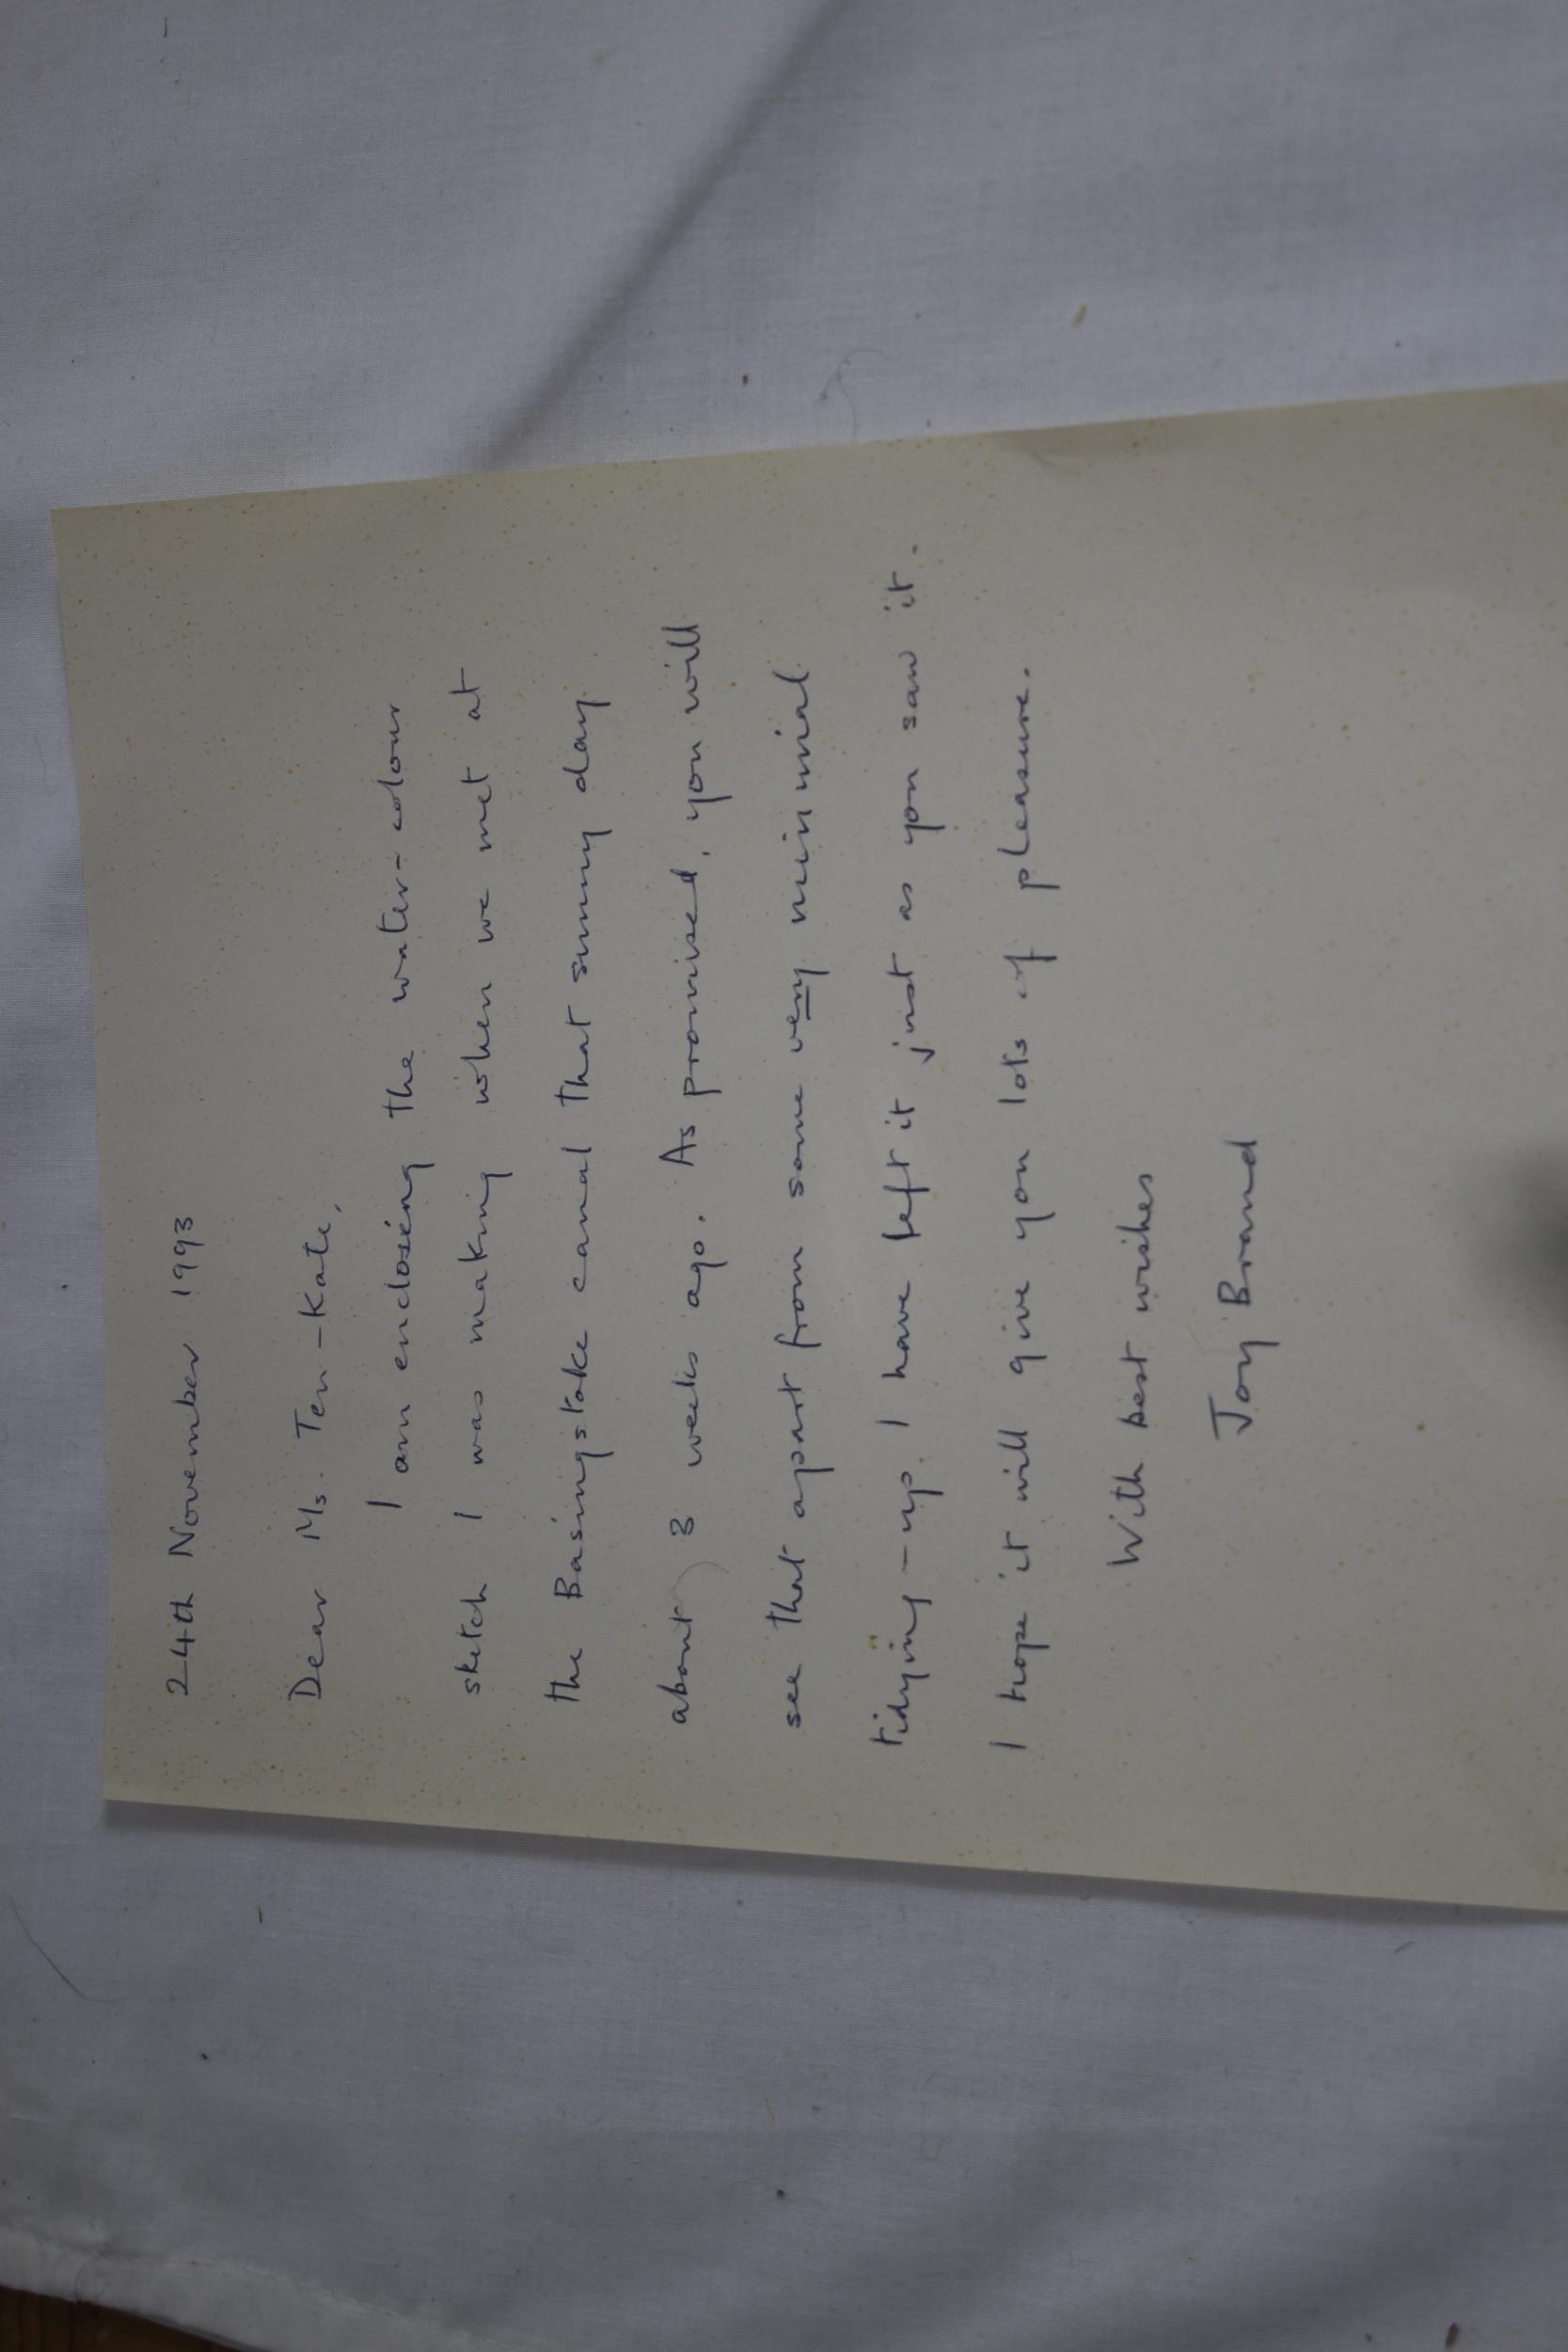 24th November 1993
Dear Ms. Ten-Kate,
I am enclosing the water-colour
sketch I was making when we met at
the Basingstoke canal that sunny day
about 3 weeks ago. As promised, you will
see that apart from some very minimal
tidying-up I have left it just as you saw it.
I hope it will give you lots of pleasure.
With best wishes
Joy Brand